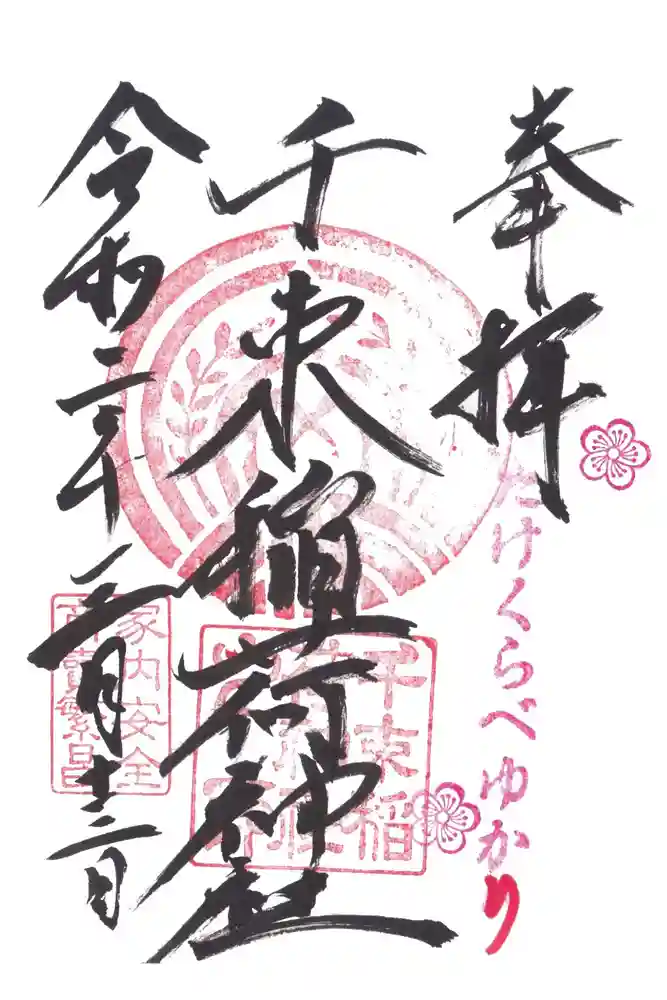 奉拝
たけくらべゆかり
千束稲荷神社
令和二年三月十二日
千束稲
荷神社
家内安全
商賣繁昌